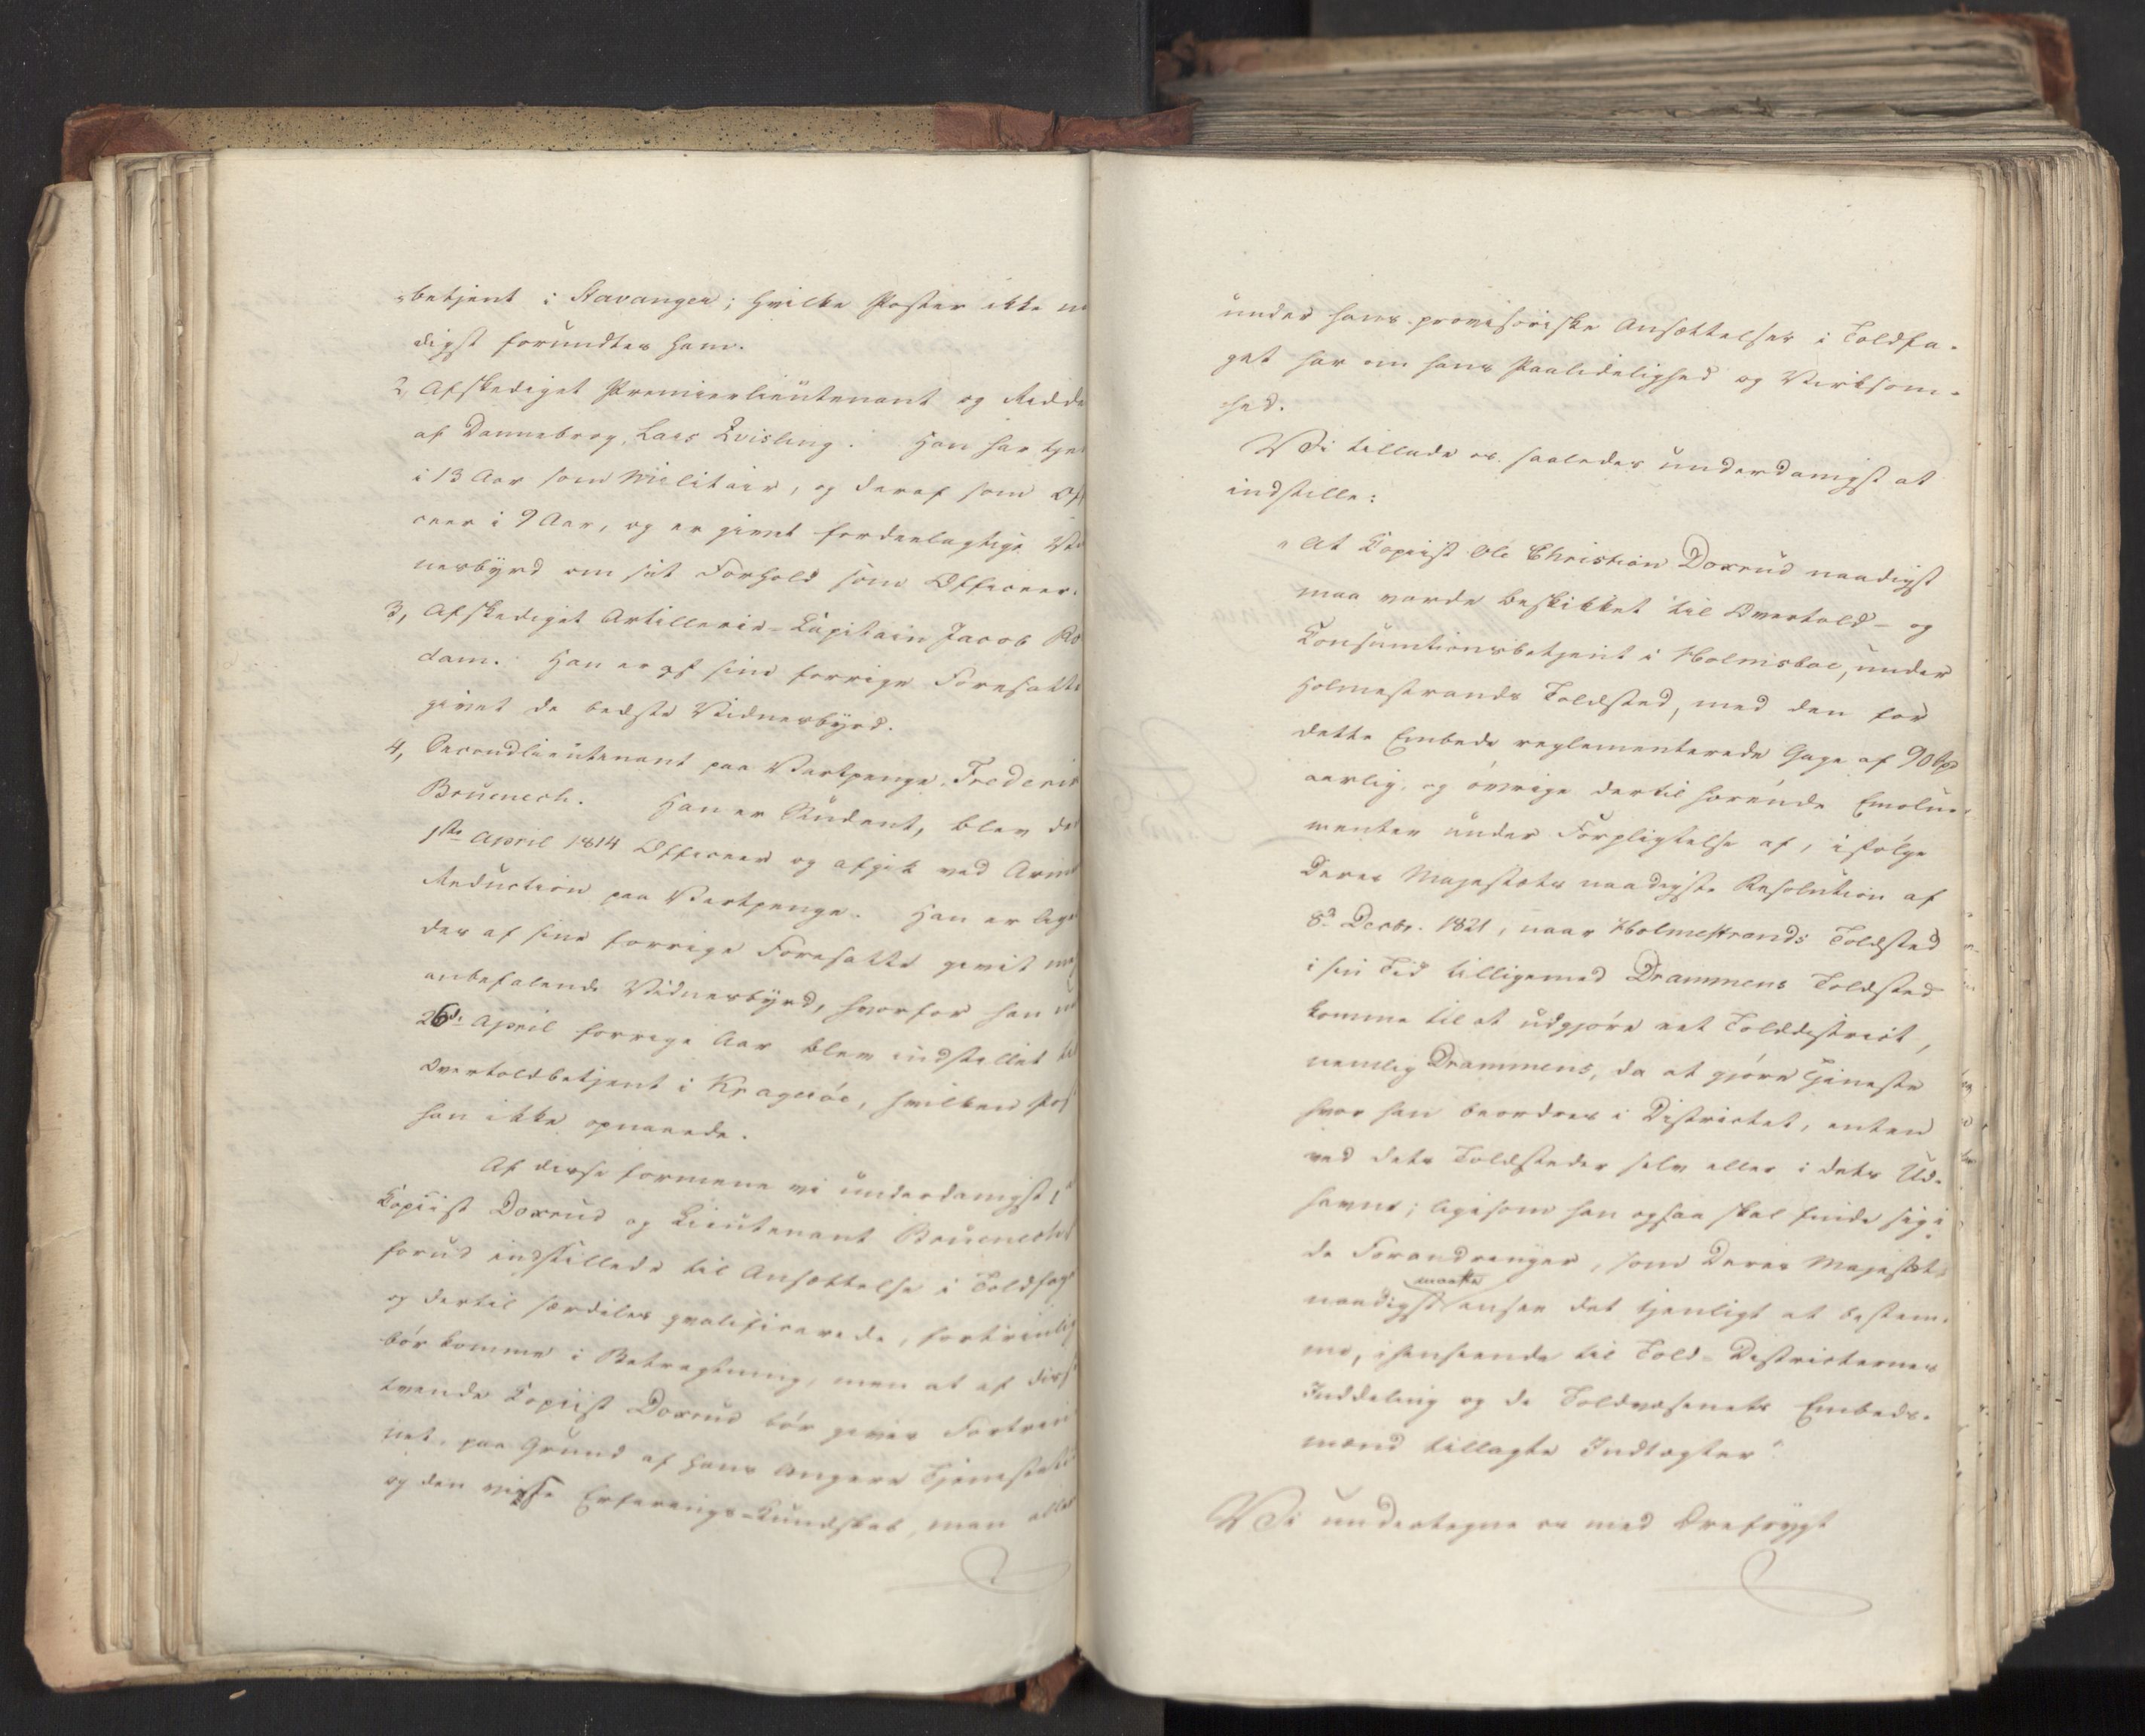 -betjent i Stavanger; hvilke Poster ikke n
digst forundtes ham.
2, Afskediget Premierlieutenant og Ridde
af Dannebrog, Lars Qvisling. Han har tje
i 13 Aar som Militair, og deraf som Of
ceer i 9 Aar, og er givet fordeelagtige Vid
nesbyrd om sit Forhold som Officeer.
3, Afskediget Artillerie-Capitain Jacob Ro
dam. Han er af sine forrige Foresatte
givet de bedste Vidnesbyrd.
4, Secondlieutenant paa Vartpenge, Frederik
Bruenech. Han er Student, blev den
1ste April 1814 Officeer og afgik ved Armee
Reduction paa Vartpenge. Han er lige
des af sine forrige Foresatte givet meg
anbefalende Vidnesbyrd, hvorfor han u
26de April forrige Aar blev indstillet til
Overtoldbetjent i Krageröe, hvilken Pos
han ikke opnaaede.
Af disse formene vi underdanigst,
Kopiist Doxrud og Lieutenant Bruenech
forud indstillede til Ansættelse i Toldfag
og dertil særdeles qvalificerede, fortrinlig
bör komme i Betragtning, men at af diss
tvende Kopiist Doxrud bör gives Fortrin
net, paa Grund af hans længere Tjeneste
og den visse Erfarings-Kundskab, man alle
under hans provisoriske Ansættelser i Toldfa-
get har om hans Paalidelighed og Virksom-
hed.
Vi tillade os saaledes underdanigst at
indstille:
"At Kopiist Ole Christian Doxrud naadigst
maa vorde beskikket til Overtold- og
Consumtionsbetjent i Holmsboe, under
Holmestrands Toldsted, med den for
dette Embede reglementerede Gage af 90 Spd
aarlig, og övrige dertil hörende Emolu-
menter under Forpligtelse af, ifölge
Deres Majestæts naadigste Resolution af
8de Decbr. 1821, naar Holmestrands Toldsted
i sin Tid tilligemed Drammens Toldsted
komme til at udgjöre eet Tolddistrict,
nemlig Drammens, da at gjöre Tjeneste
hvor han beordres i Districtet, enten
ved dets Toldsteder selv eller i dets Ud-
havne; ligesom han ogsaa skal finde sig i
de Forandringer, som Deres Majestæt
naadigst maatte ansee det tjenligt at bestem-
me, i Henseende til Told-Districternes
Inddeling og de Toldvæsenets Embeds-
mænd tillagte Indtægter"
Vi undertegne os med Ærefrygt